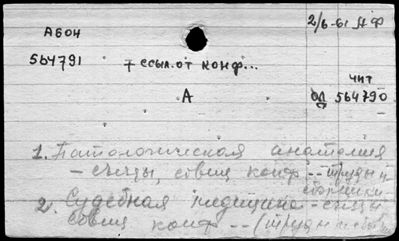 2/6-61 АФ
А604
564791
+ ссыл. от конф...
чит
А
ОД 564790
1. Патологическая анатомия
- съезды, совещ конф -- труды и
сборники
2. Судебная медицина - съезды
совещ конф -- (труды и сборн